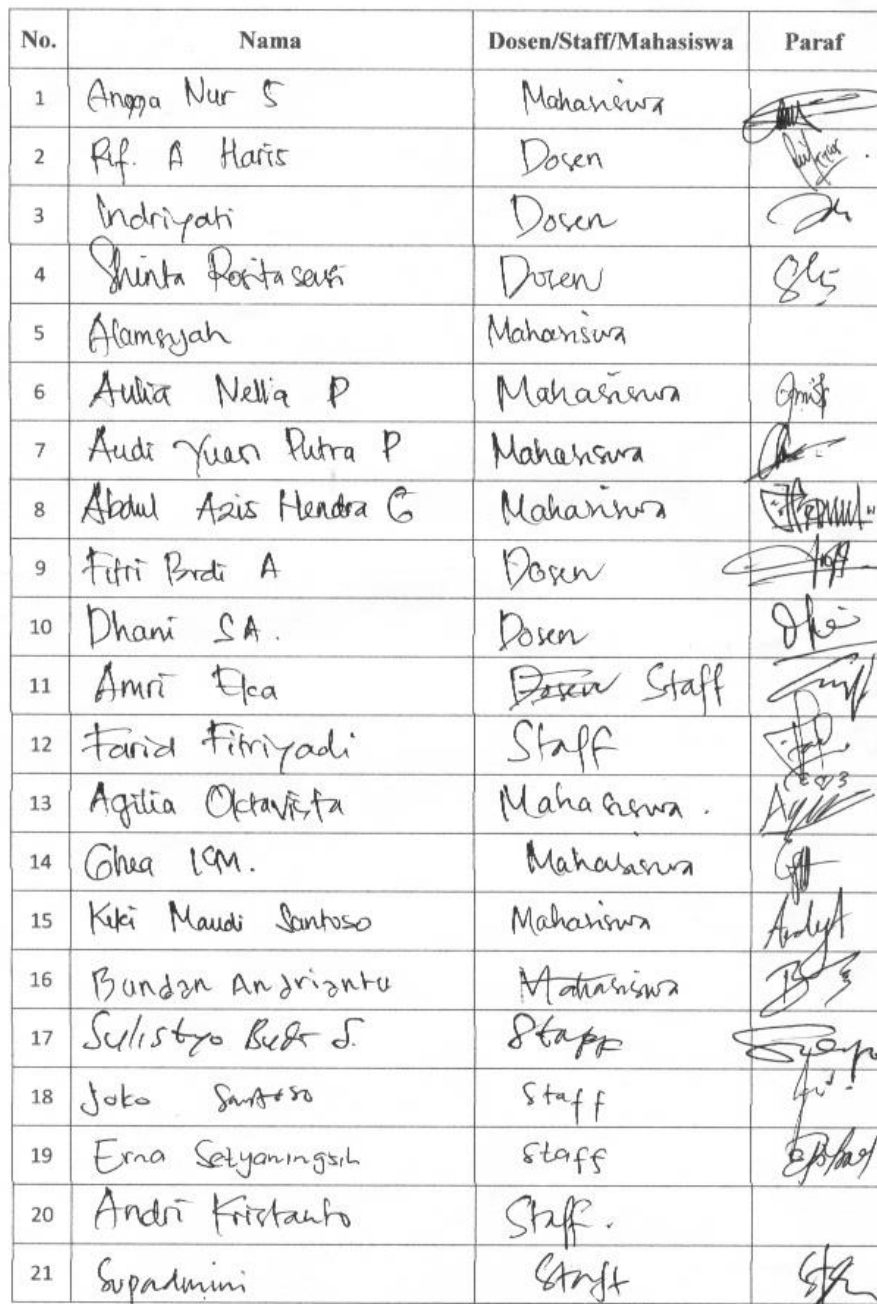 No. Nama Dosen/Staff/Mahasiswa Paraf
1 Angga Nur S Mahasiswa
2 Rif. A Haris Dosen
3 Indriyati Dosen
4 Shinta Rositasari Dosen
5 Alamsyah Mahasiswa
6 Aulia Nellia P Mahasiswa
7 Audi Yuan Putra P Mahasiswa
8 Abdul Azis Hendra G Mahasiswa
9 Fitri Budi A Dosen
10 Dhani SA. Dosen
11 Amri Eka Dosen Staff
12 Farid Fitriyadi Staff
13 Agilia Oktavista Mahasiswa.
14 Ghea Mahasiswa
15 Kiki Maudi Santoso Mahasiswa
16 Bundan Andrianto Mahasiswa
17 Sulistyo Budi S. Staff
18 Joko Santoso Staff
19 Erna Setyaningsih Staff
20 Andri Kristanto Staff.
21 Supadmini Staff